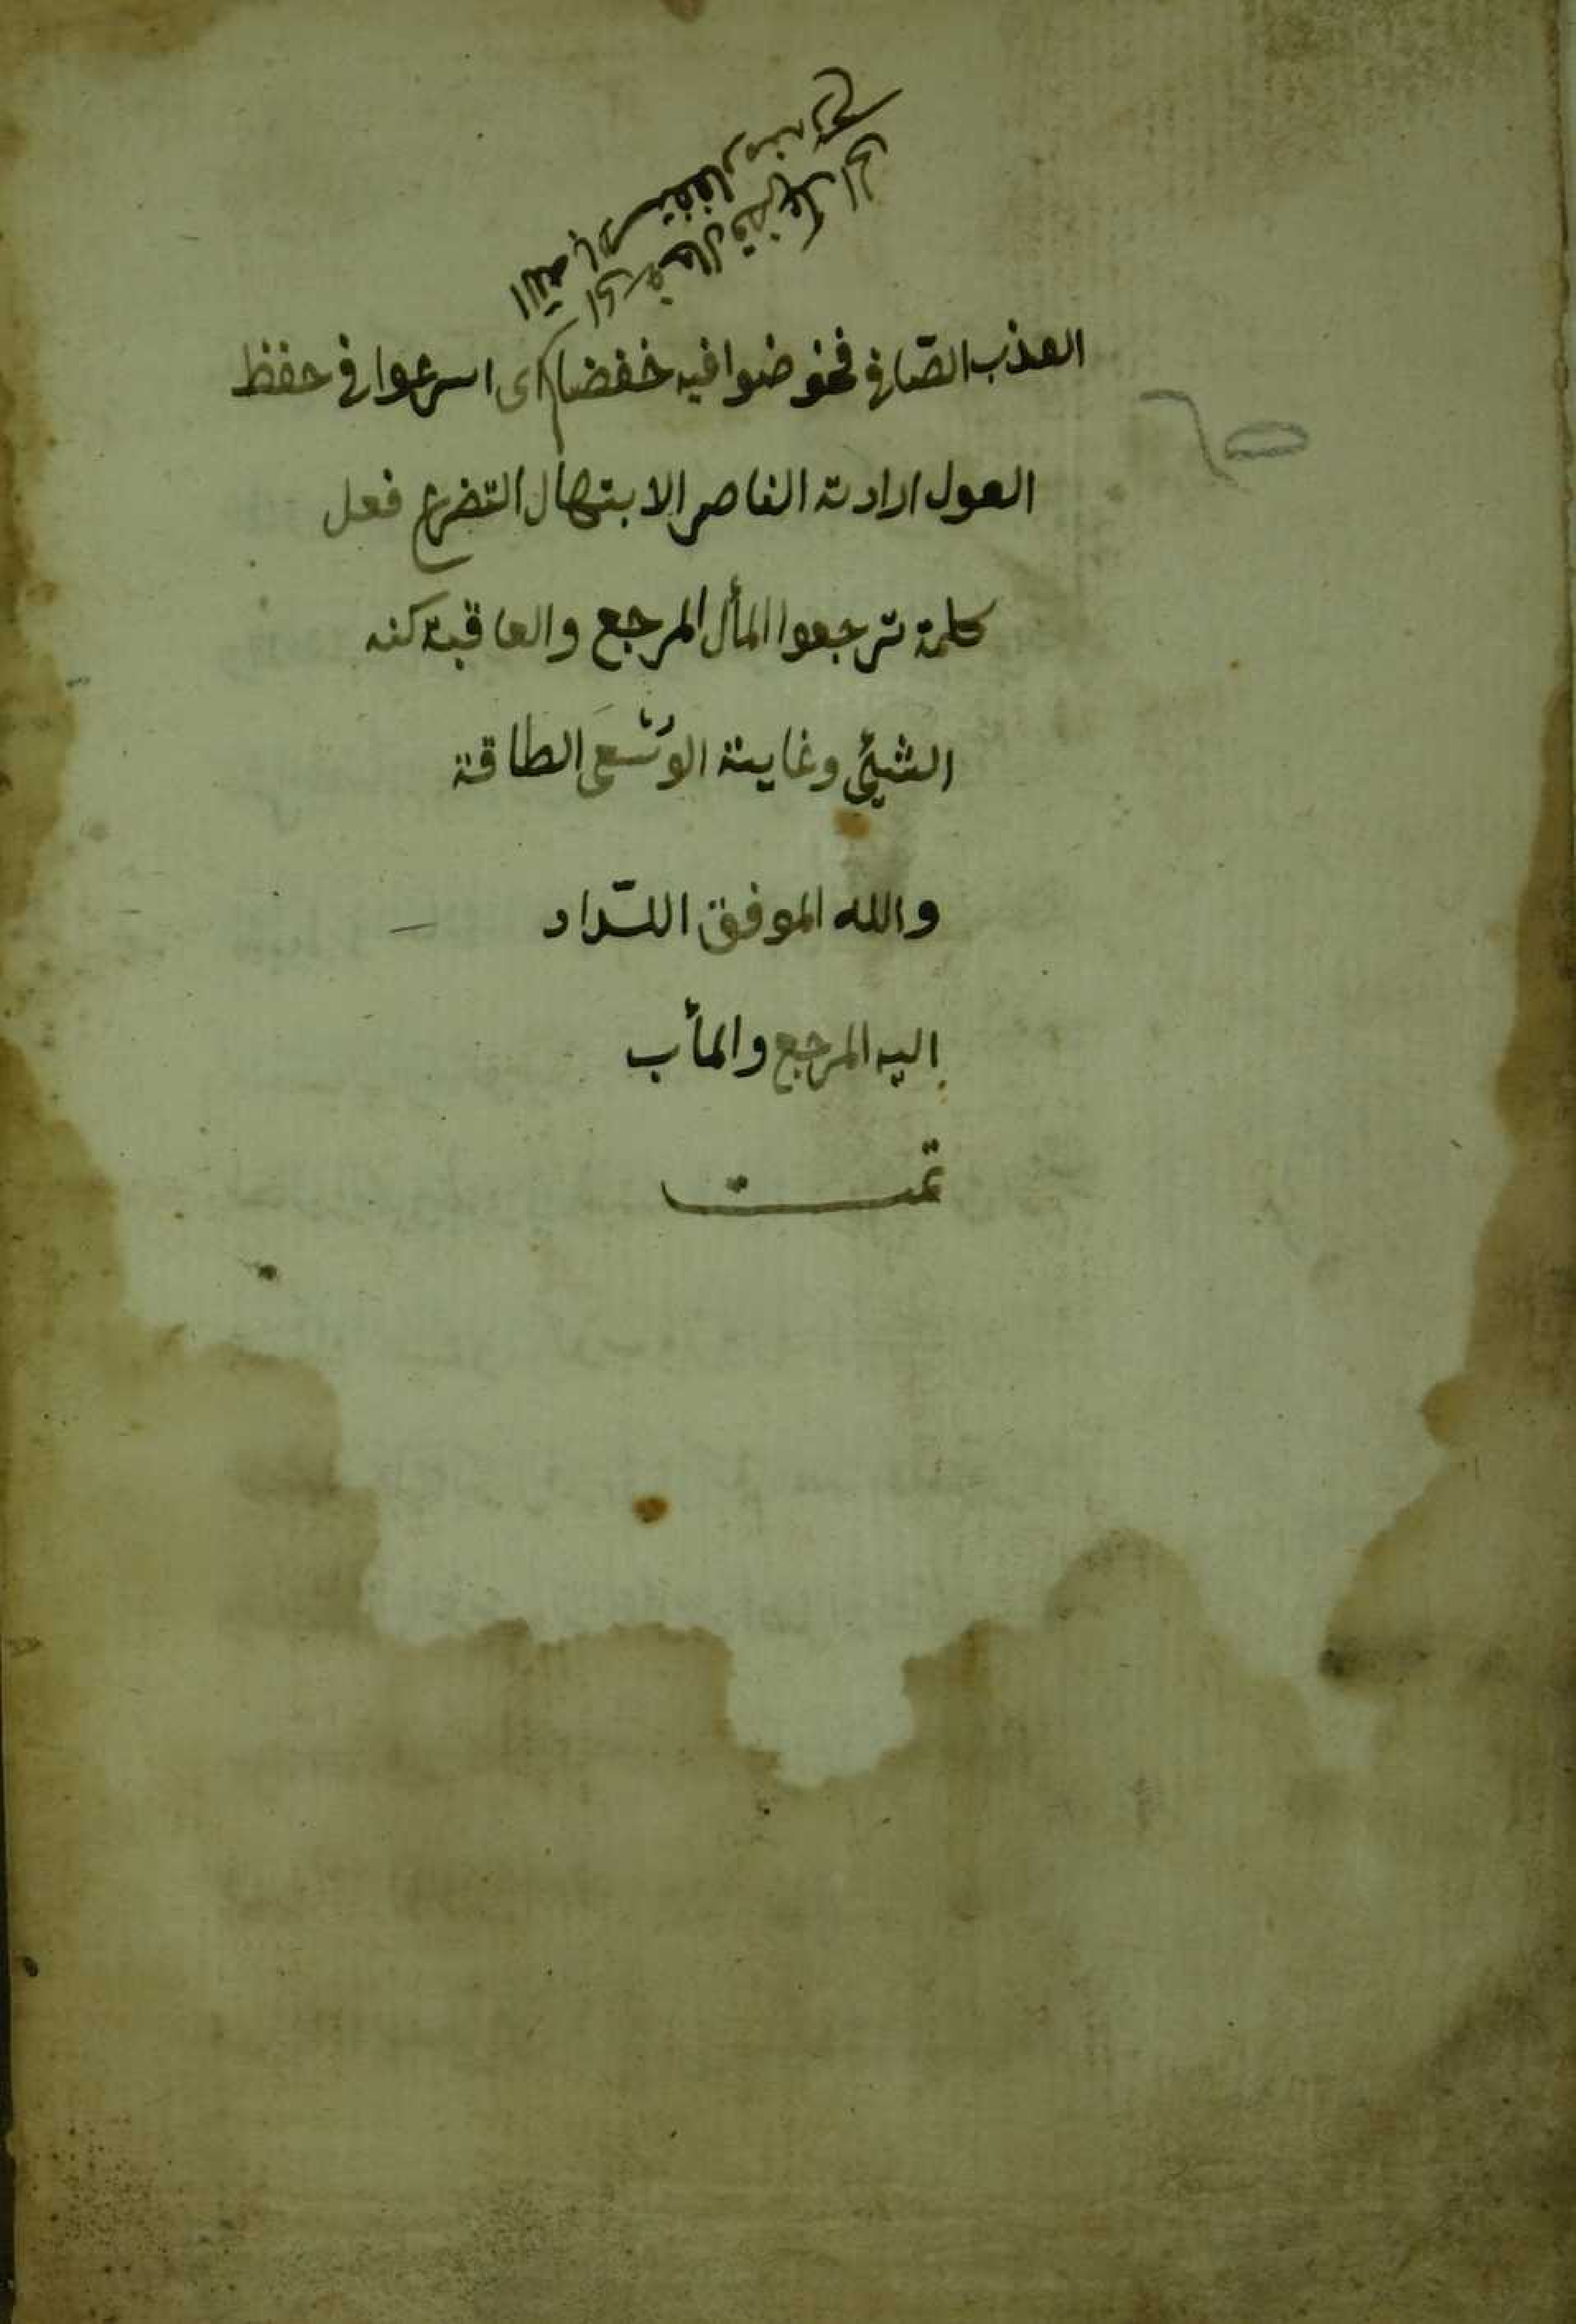 العذب الصّافى فخوضوا فيه خفضا اى اسرعوا فى حفظ
العول ارادته الناصر الابتهال التضرع فعل
كلمة ترجعوا المأل المرجع والعاقبة كنه
الشيئ وغاية الوُسْعَ الطاقة
والله الموفق السّداد
اليه المرجع والمأب
تمت
٦٥